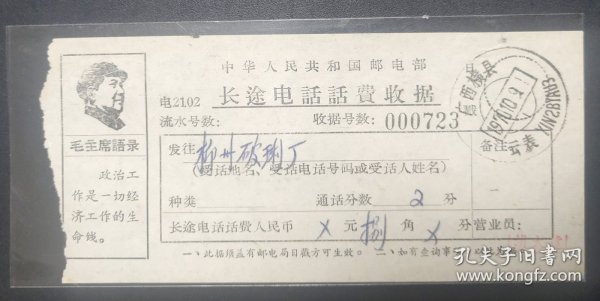 中华人民共和国邮电部
电2102
长途电話話費收据
流水号数：
收据号数：000723
毛主席語录
政治工
作是一切经
济工作的生
命线。
发往：柳州玻璃厂
备注：
(受话地名、受话电话号码或受话人姓名)
种类
通话分数 2 分
长途电话话费人民币 X 元 捌 角 X 分
营业员：
一、此据须盖有邮电局日戳方可生效。
二、如有查询事
广西横县
1970.10.9
云表
孔夫子旧书网
kongfz.com